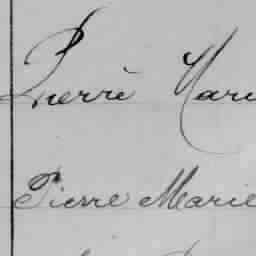 Pierre Mari
Pierre Marie